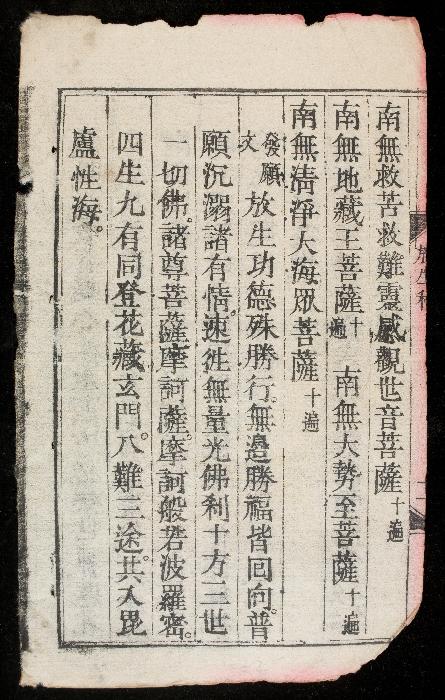 南無救苦救難靈感觀世音菩薩十遍
南無地藏王菩薩十遍 南無大勢至菩薩十遍
南無清淨大海眾菩薩十遍
發願文 放生功德殊勝行。無邉勝福皆囘向。普
願沉溺諸有情。速徃無量光佛刹十方三世
一切佛。諸尊菩薩摩訶薩。摩訶般若波羅密。
四生九有同登花藏玄門。八難三途。共入毘
盧性海。